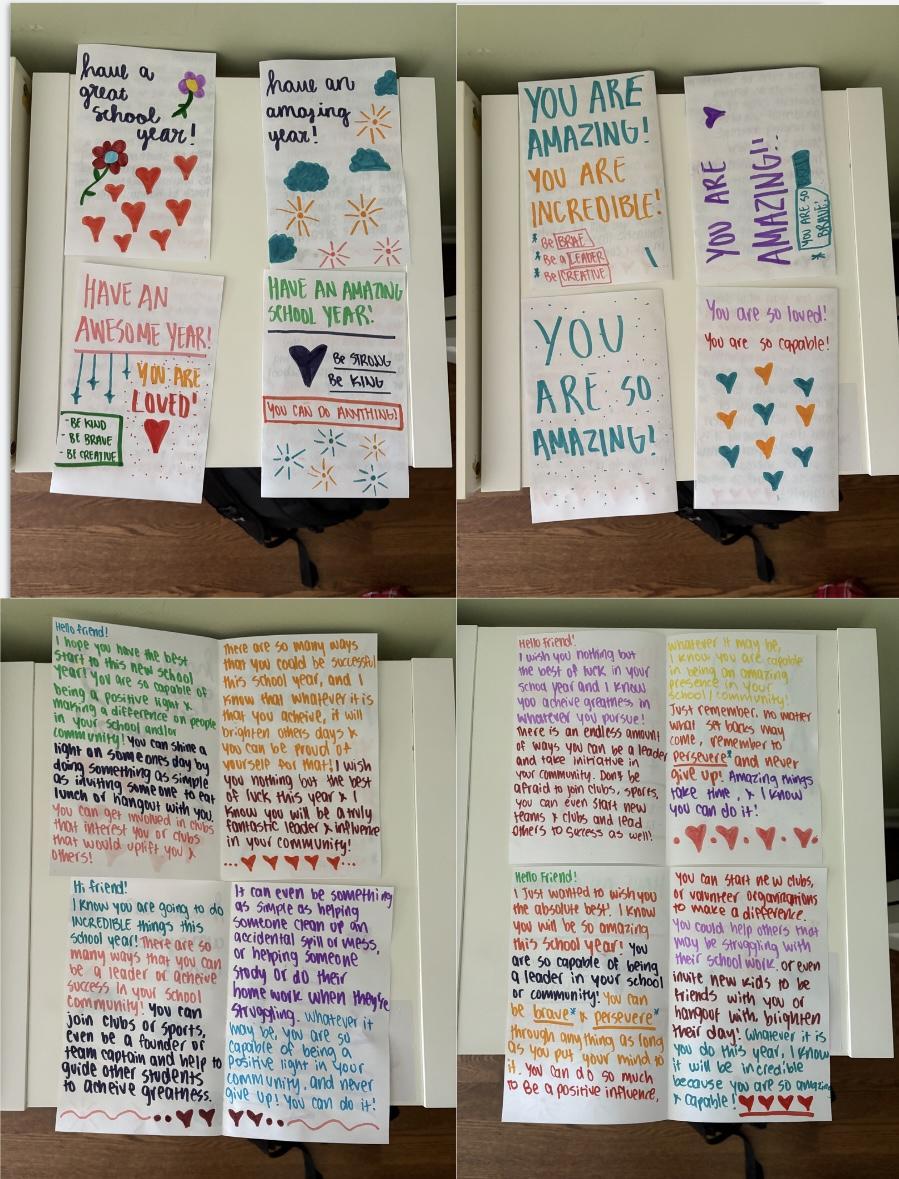 have a
great
school
year!
have an
amazing
year!
HAVE AN
AWESOME YEAR!
YOU ARE
LOVED!
- BE KIND
- BE BRAVE
- BE CREATIVE
HAVE AN AMAZING
SCHOOL YEAR!
BE STRONG
BE KING
YOU CAN DO ANYTHING!
YOU ARE
AMAZING!
YOU ARE
INCREDIBLE!
* Be BRAE
* Be a LEADER
* Be CREATIVE
YOU ARE
AMAZING!!
YOU ARE SO
* BRAVE!
YOU
ARE SO
AMAZING!
You are so loved!
You are so capable!
Hello friend!
I hope you have the best
start to this new school
year! you are so capable of
being a positive light &
making a difference on people
in your school and/or
community! You can shine a
light on someones day by
doing something as simple
as inviting someone to eat
lunch or hangout with you.
You can get involved in clubs
that interest you or clubs
that would uplift you &
others!
There are so many ways
that you could be successful
this school year, and I
know that whatever it is
that you acheive, it will
brighten others days &
you can be proud of
yourself for that! I wish
you nothing but the best
of luck this year & I
know you will be a truly
fantastic leader & influence
in your community!
Hi friend!
I know you are going to do
INCREDIBLE things this
school year! There are so
many ways that you can
be a leader or acheive
success in your school
community! You can
join clubs or sports,
even be a founder or
team captain and help to
guide other students
to acheive greatness.
It can even be something
as simple as helping
someone clean up an
accidental spill or mess,
or helping someone
study or do their
home work when they're
struggling. Whatever it
may be, you are so
capable of being a
positive light in your
community, and never
give up! You can do it!
Hello friend!
I wish you nothing but
the best of luck in your
school year and I know
you acheive greatness in
whatever you pursue!
There is an endless amount
of ways you can be a leader
and take initiative in
your community. Don't be
afraid to join clubs, sports,
you can even start new
teams & clubs and lead
others to success as well!
whatever it may be,
I know you are capable
in being an amazing
presence in your
school/community!
Just remember, no matter
what set backs may
come, remember to
persevere* and never
give up! Amazing things
take time, & I know
you can do it!
Hello Friend!
I Just wanted to wish you
the absolute best. I know
you will be so amazing
this school year! You
are so capable of being
a leader in your school
or community! You can
be brave* & persevere*
through anything as long
as you put your mind to
it. You can do so much
to Be a positive influence,
You can start new clubs,
or volunteer organizations
to make a difference.
You could help others that
may be struggling with
their school work. or even
invite new kids to be
friends with you or
hangout with brighten
their day! Whatever it is
you do this year, I know
it will be incredible
because you are so amazing
& capable!